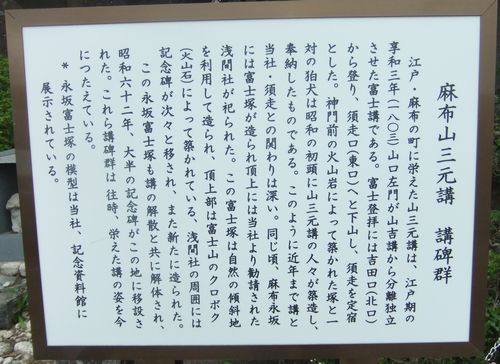 麻布山三元講　講碑群
江戸・麻布の町に栄えた山三元講は、江戸期の
享和三年（一八〇三）山口左門が山吉講から分離独立
させた富士講である。富士登拝には吉田口（北口）
から登り、須走口（東口）へと下山し、須走を定宿
とした。神門前の火山岩によって築かれた塚と一
対の狛犬は昭和の初頭に山三元講の人々が築造し、
奉納したものである。このように近年まで講と
当社・須走との関わりは深い。同じ頃、麻布永坂
には富士塚が造られ頂上には当社より勧請された
浅間社が祀られた。この富士塚は自然の傾斜地
を利用して造られ、頂上部は富士山のクロボク
（火山石）によって築かれている、浅間社の周囲には
記念碑が次々と移され、また新たに造られた。
この永坂富士塚も講の解散と共に解体され、
昭和六十二年、大半の記念碑がこの地に移設さ
れた。これら講碑群は往時、栄えた講の姿を今
につたえている。
＊永坂富士塚の模型は当社、記念資料館に
展示されている。